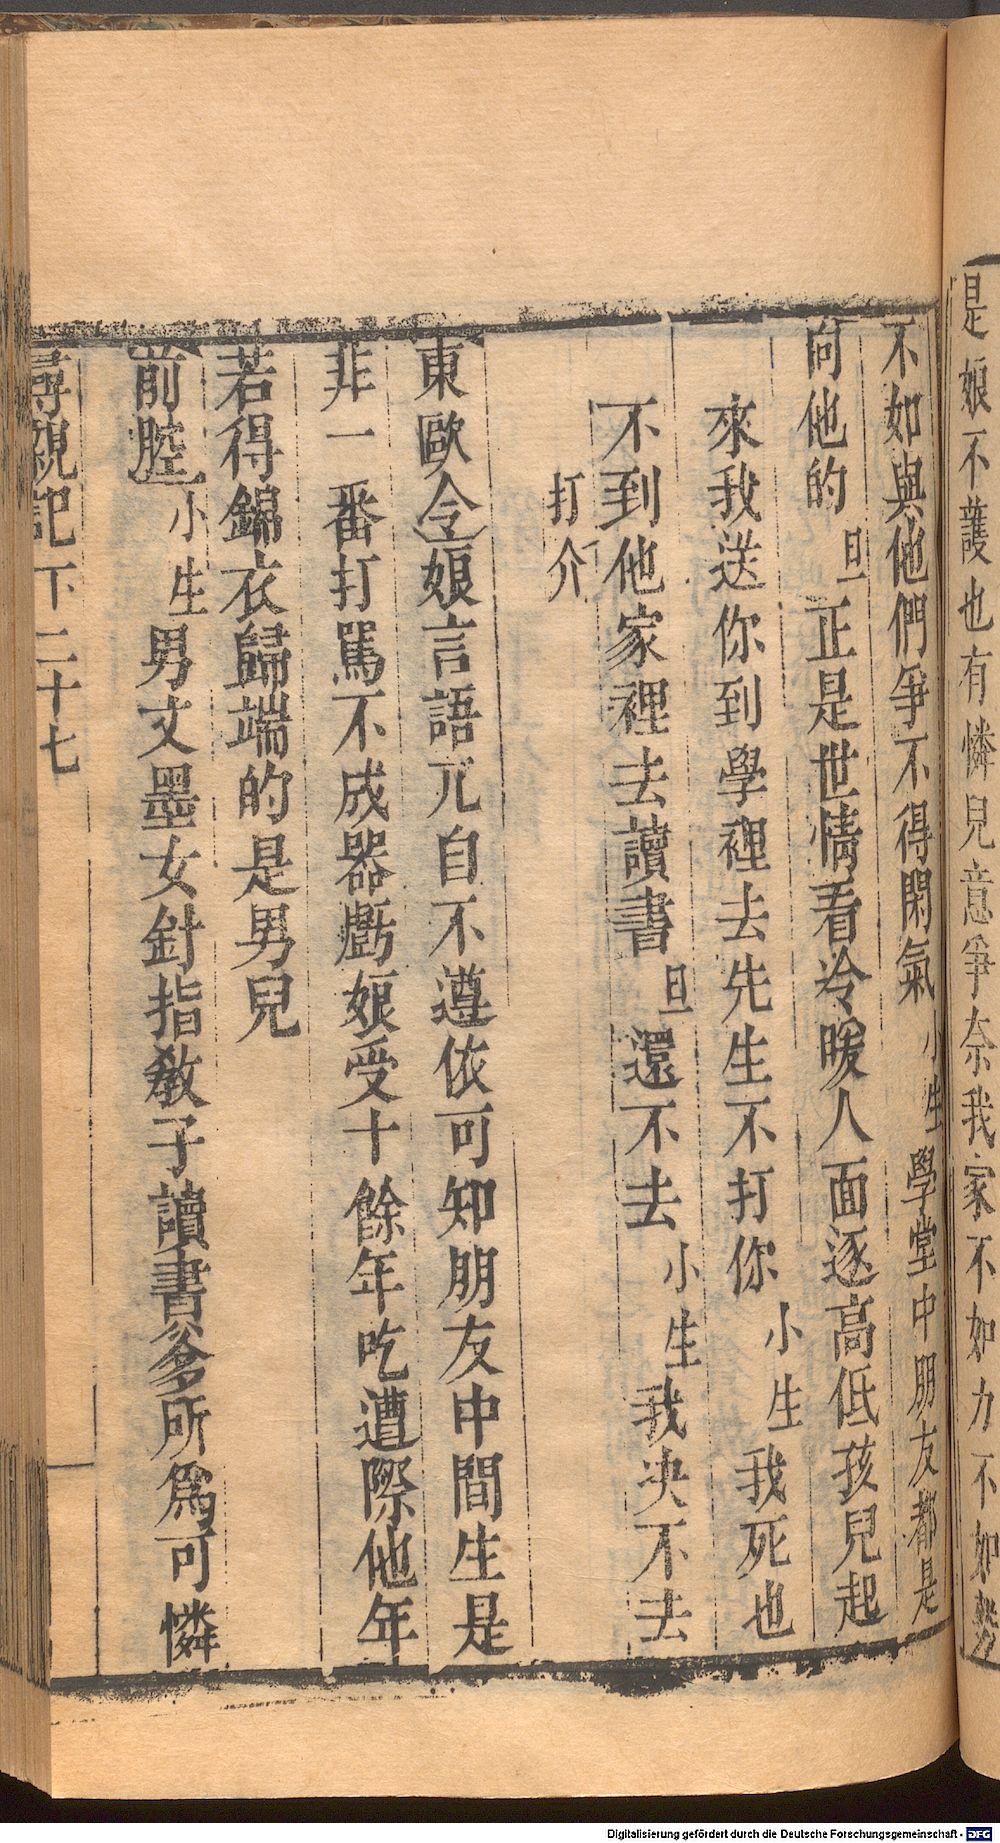 是娘不護也有憐兒意爭奈我家不如力不如勢
不如與他們爭不得閑氣小生學堂中朋友都是
向他的旦正是世情看冷暖人面逐高低孩兒起
來我送你到學裡去先生不打你小生我死也
不到他家裡去讀書旦還不去小生我决不去
打介
東歐令娘言語兀自不遵依可知朋友中間生是
非一番打罵不成器虧娘受十餘年吃遭際他年
若得錦衣歸端的是男兒
前腔小生男文墨女針指敎子讀書爹所爲可憐
尋親記 下 二十七
Digitalisierung gefördert durch die Deutsche Forschungsgemeinschaft - DFG